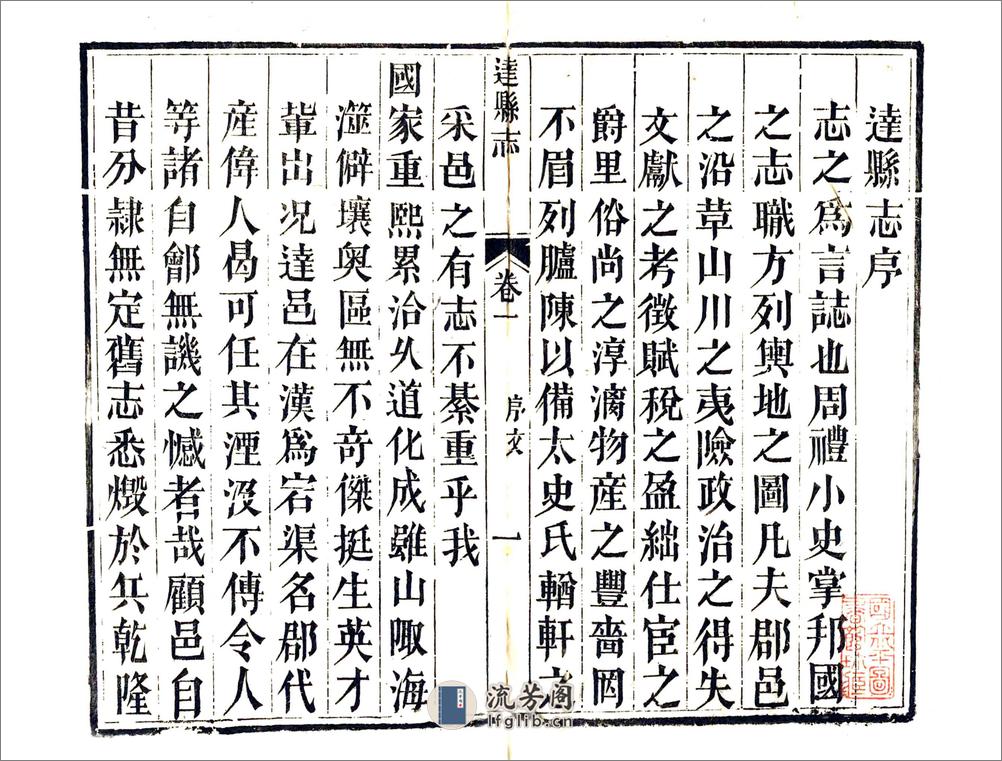 達縣志序
志之爲言誌也周禮小史掌邦國
之志職方列輿地之圖凡夫郡邑
之沿革山川之夷險政治之得失
文獻之考徵賦稅之盈絀仕宦之
爵里俗尚之淳漓物産之豐嗇罔
不眉列臚陳以備太史氏輶軒之
達縣志
卷一
序文
一
采邑之有志不綦重乎我
國家重熙累洽久道化成雖山陬海
澨僻壤奥區無不竒傑挺生英才
輩出况達邑在漢爲宕渠名郡代
産偉人曷可任其湮没不傳令人
等諸自鄶無譏之憾者哉顧邑自
昔分隸無定舊志悉燬於兵乾隆
流芳阁
lfglib.cn